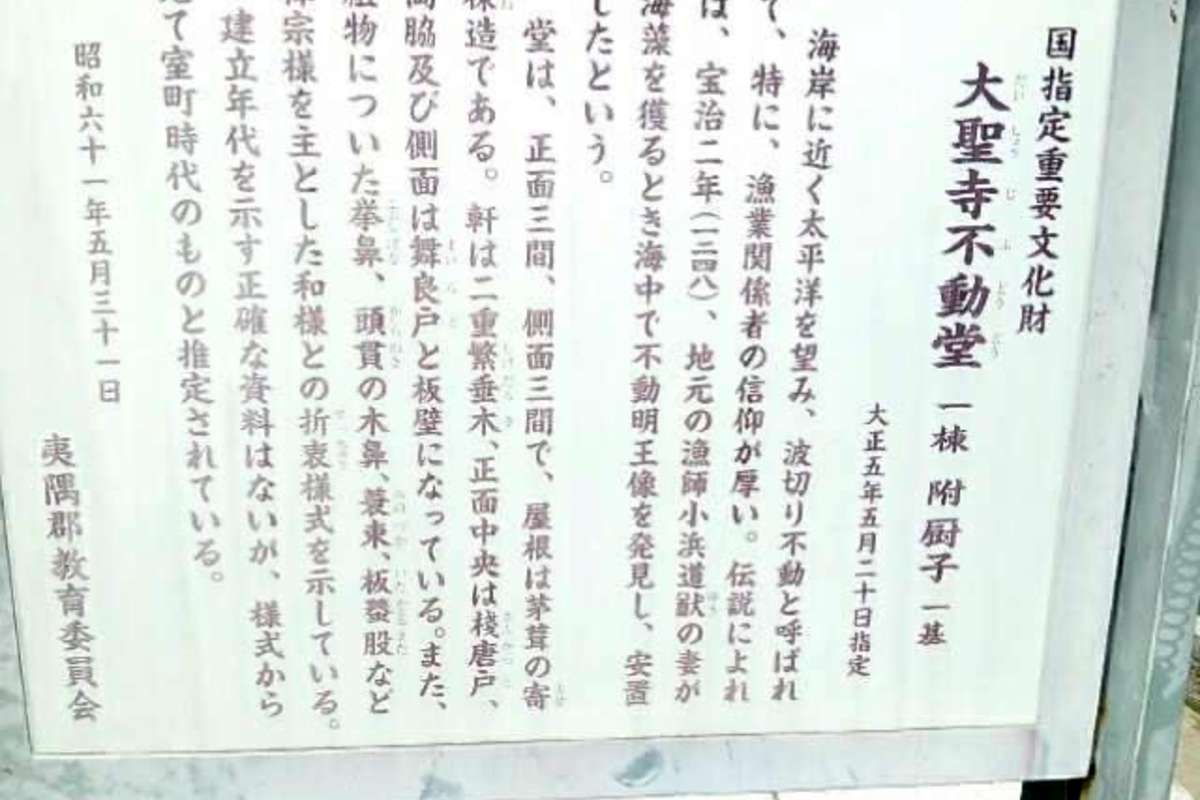 国指定重要文化財
大聖寺不動堂 一棟 附厨子 一基
大正五年五月二十日指定
海岸に近く太平洋を望み、波切り不動と呼ばれ
て、特に、漁業関係者の信仰が厚い。伝説によれ
ば、宝治二年(一二四八)、地元の漁師小浜道猷の妻が
海藻を獲るとき海中で不動明王像を発見し、安置
したという。
堂は、正面三間、側面三間で、屋根は茅葺の寄
棟造である。軒は二重繁垂木、正面中央は棧唐戸、
両脇及び側面は舞良戸と板壁になっている。また、
組物についた挙鼻、頭貫の木鼻、蓑束、板蟇股など
宗様を主とした和様との折衷様式を示している。
建立年代を示す正確な資料はないが、様式から
て室町時代のものと推定されている。
昭和六十一年五月三十一日
夷隅郡教育委員会